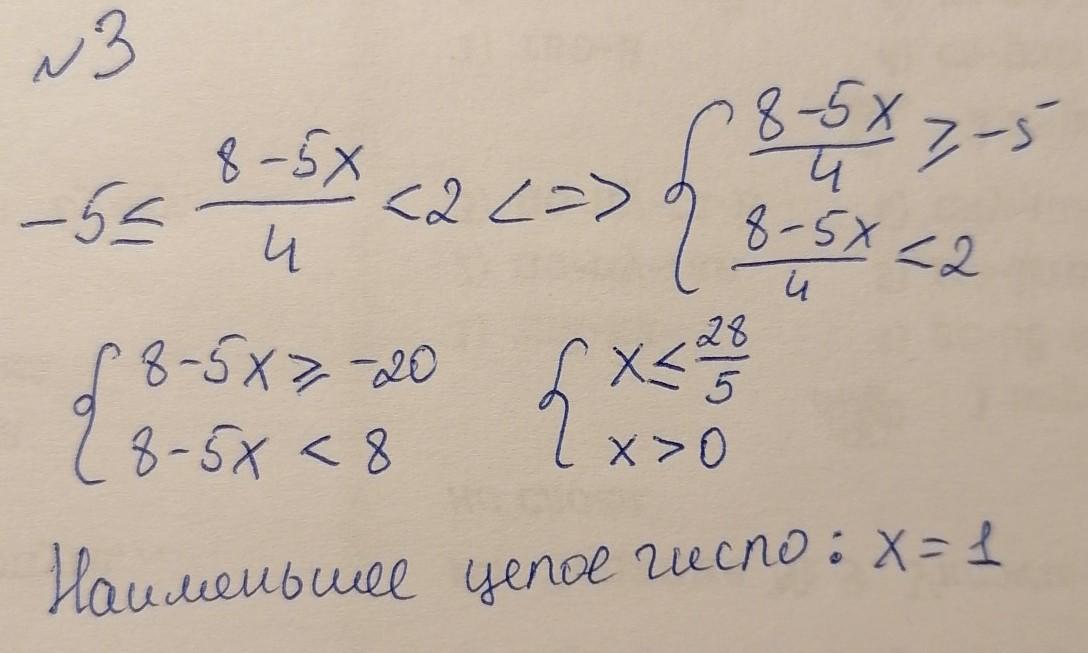 №3
-5 ≤ (8-5x)/4 < 2 <=> { (8-5x)/4 ⩾ -5
(8-5x)/4 < 2
{ 8-5x ⩾ -20
8-5x < 8
{ x ≤ 28/5
x > 0
Наименьшее целое число: x = 1